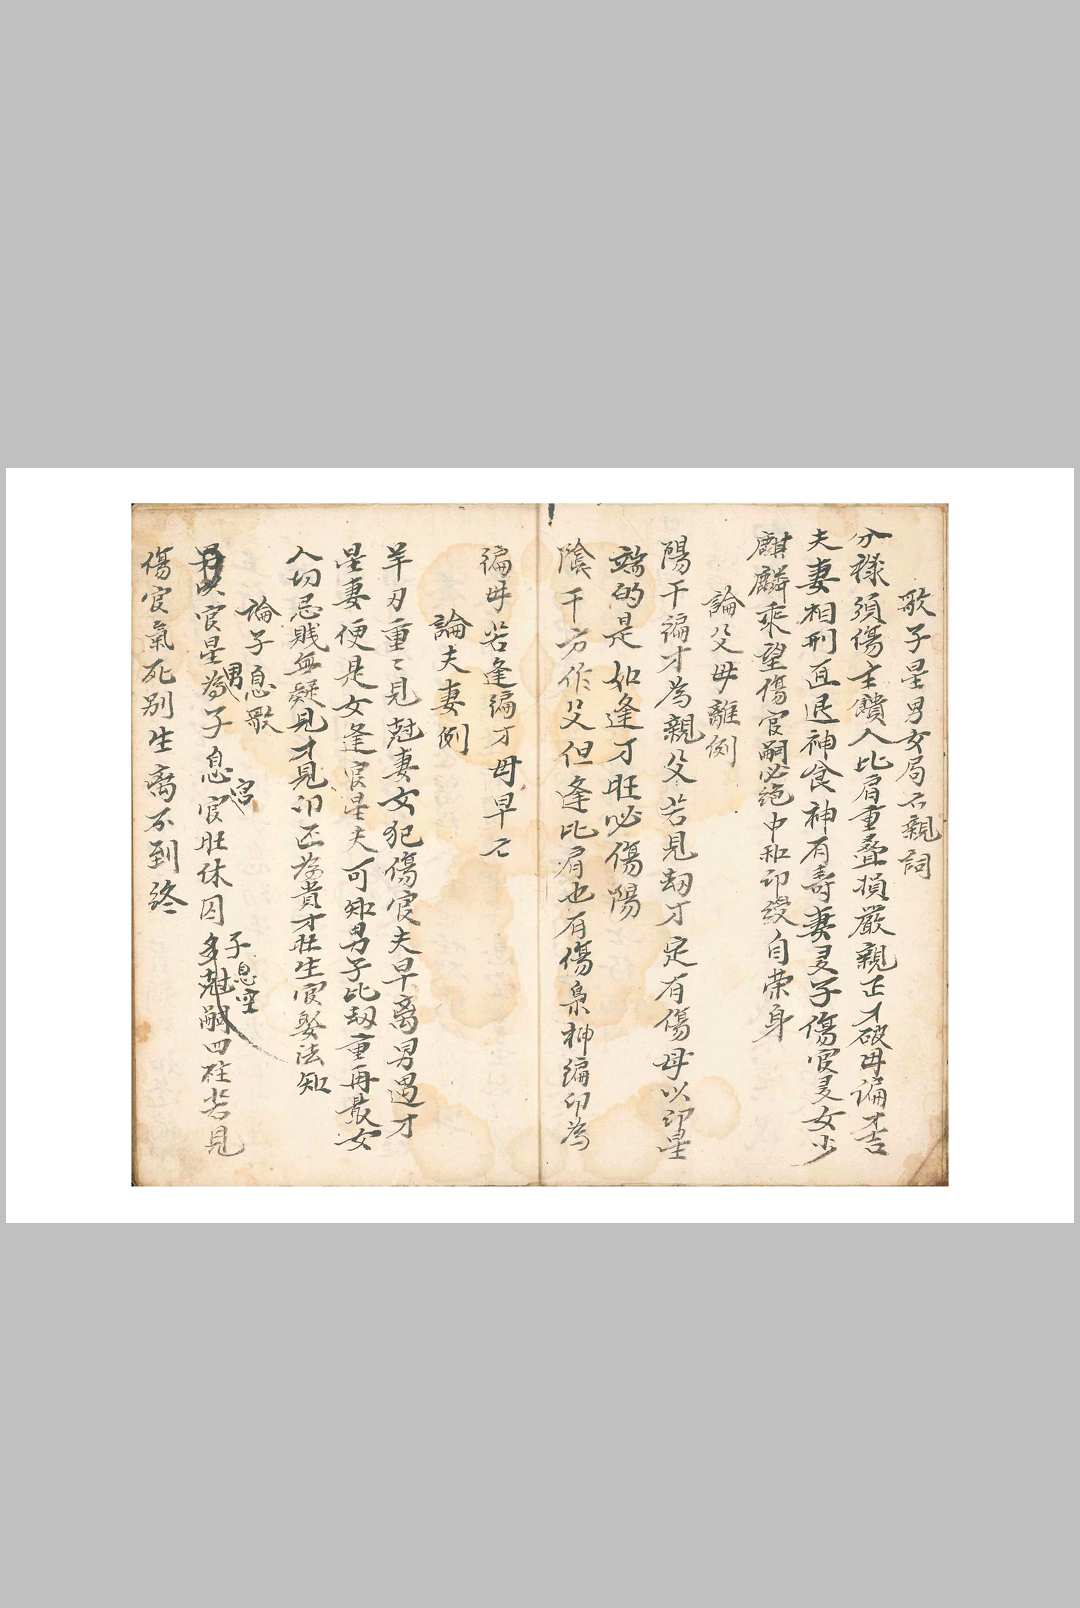 歌子星男女局六親詞
分祿須傷主饋人比肩重疊損嚴親正才破母偏才吉
夫妻相刑直退神食神有壽妻多子傷官多女少
麒麟乘望傷官嗣必絶中和印綬自荣身
論父母離例
陽干编才為親父若見刼才定有傷母以印星
端的是如逢才旺必傷陽
陰干方作父但逢比肩也有傷梟神编印為
编母若逢编才母早亡
論夫妻例
羊刃重〻見尅妻女犯傷官夫早离男遇才
星妻便是女逢官星夫可知男子比刼重再最女
人切忌賎無疑見才見印正為貴才旺生官娶法知
論子息歌
男以官星為子息官旺休囚多尅嗣四柱若見
男
宮
子息空
傷官氣死别生离不到终